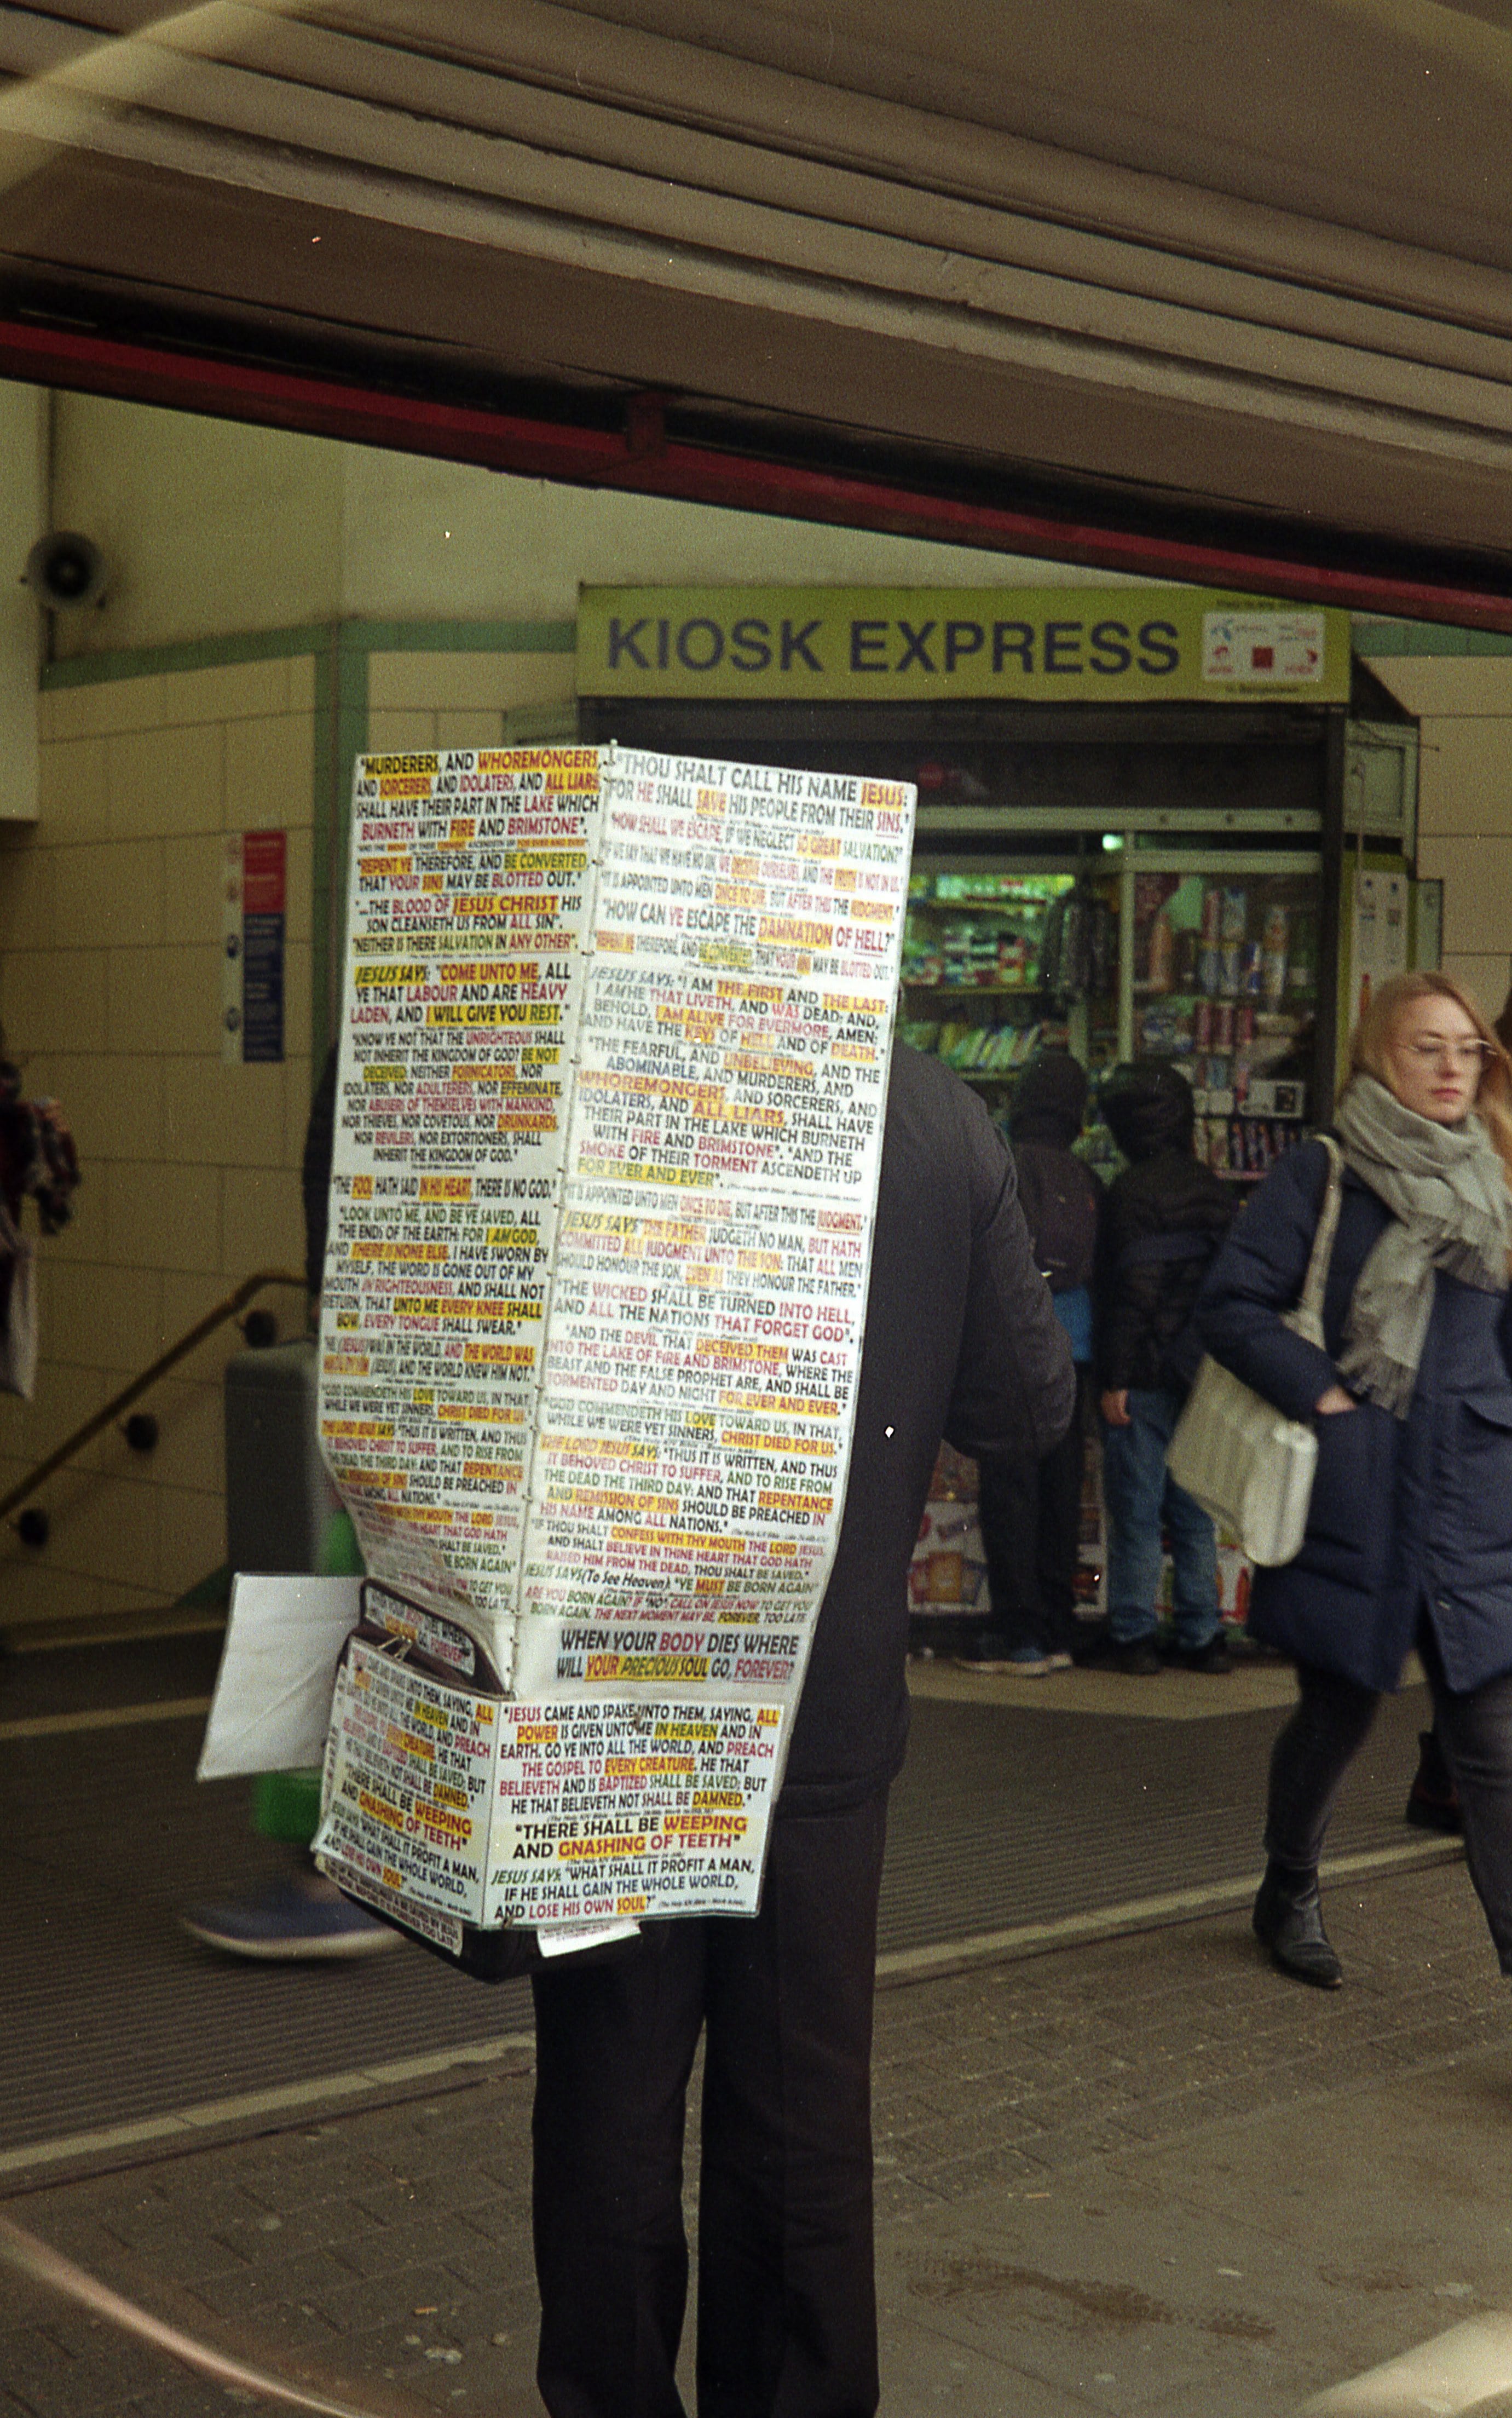 KIOSK EXPRESS
"MURDERERS, AND WHOREMONGERS,
AND SORCERERS, AND IDOLATERS, AND ALL LIARS,
SHALL HAVE THEIR PART IN THE LAKE WHICH
BURNETH WITH FIRE AND BRIMSTONE".
"REPENT YE THEREFORE, AND BE CONVERTED,
THAT YOUR SINS MAY BE BLOTTED OUT."
"...THE BLOOD OF JESUS CHRIST HIS
SON CLEANSETH US FROM ALL SIN".
"NEITHER IS THERE SALVATION IN ANY OTHER".
JESUS SAYS: "COME UNTO ME, ALL
YE THAT LABOUR AND ARE HEAVY
LADEN, AND I WILL GIVE YOU REST."
"KNOW YE NOT THAT THE UNRIGHTEOUS SHALL
NOT INHERIT THE KINGDOM OF GOD? BE NOT
DECEIVED: NEITHER FORNICATORS, NOR
IDOLATERS, NOR ADULTERERS, NOR EFFEMINATE,
NOR ABUSERS OF THEMSELVES WITH MANKIND,
NOR THIEVES, NOR COVETOUS, NOR DRUNKARDS,
NOR REVILERS, NOR EXTORTIONERS, SHALL
INHERIT THE KINGDOM OF GOD."
"THE FOOL HATH SAID IN HIS HEART, THERE IS NO GOD."
"LOOK UNTO ME, AND BE YE SAVED, ALL
THE ENDS OF THE EARTH: FOR I AM GOD,
AND THERE IS NONE ELSE. I HAVE SWORN BY
MYSELF, THE WORD IS GONE OUT OF MY
MOUTH IN RIGHTEOUSNESS, AND SHALL NOT
RETURN, THAT UNTO ME EVERY KNEE SHALL
BOW, EVERY TONGUE SHALL SWEAR."
"HE (JESUS) WAS IN THE WORLD, AND THE WORLD WAS
MADE BY HIM (JESUS), AND THE WORLD KNEW HIM NOT."
"GOD COMMENDETH HIS LOVE TOWARD US, IN THAT,
WHILE WE WERE YET SINNERS, CHRIST DIED FOR US."
THE LORD JESUS SAYS: "THUS IT IS WRITTEN, AND THUS
IT BEHOVED CHRIST TO SUFFER, AND TO RISE FROM
THE DEAD THE THIRD DAY: AND THAT REPENTANCE
AND REMISSION OF SINS SHOULD BE PREACHED IN
NAME AMONG ALL NATIONS."
WITH THY MOUTH THE LORD JESUS,
THE HEART THAT GOD HATH
SHALT BE SAVED."
BE BORN AGAIN"
TO GET YOU
TOO LATE
"THOU SHALT CALL HIS NAME JESUS:
FOR HE SHALL SAVE HIS PEOPLE FROM THEIR SINS."
"HOW SHALL WE ESCAPE, IF WE NEGLECT SO GREAT SALVATION?"
"IF WE SAY THAT WE HAVE NO SIN, WE DECEIVE OURSELVES, AND THE TRUTH IS NOT IN US."
"IT IS APPOINTED UNTO MEN ONCE TO DIE, BUT AFTER THIS THE JUDGMENT."
"HOW CAN YE ESCAPE THE DAMNATION OF HELL?"
"REPENT YE THEREFORE, AND BE CONVERTED, THAT YOUR SINS MAY BE BLOTTED OUT."
JESUS SAYS: "I AM THE FIRST AND THE LAST:
I AM HE THAT LIVETH, AND WAS DEAD; AND,
BEHOLD, I AM ALIVE FOR EVERMORE, AMEN;
AND HAVE THE KEYS OF HELL AND OF DEATH."
"THE FEARFUL, AND UNBELIEVING, AND THE
ABOMINABLE, AND MURDERERS, AND
WHOREMONGERS, AND SORCERERS, AND
IDOLATERS, AND ALL LIARS, SHALL HAVE
THEIR PART IN THE LAKE WHICH BURNETH
WITH FIRE AND BRIMSTONE". "AND THE
SMOKE OF THEIR TORMENT ASCENDETH UP
FOR EVER AND EVER".
"IT IS APPOINTED UNTO MEN ONCE TO DIE, BUT AFTER THIS THE JUDGMENT."
JESUS SAYS "THE FATHER JUDGETH NO MAN, BUT HATH
COMMITTED ALL JUDGMENT UNTO THE SON: THAT ALL MEN
SHOULD HONOUR THE SON, EVEN AS THEY HONOUR THE FATHER."
"THE WICKED SHALL BE TURNED INTO HELL,
AND ALL THE NATIONS THAT FORGET GOD".
"AND THE DEVIL THAT DECEIVED THEM WAS CAST
INTO THE LAKE OF FIRE AND BRIMSTONE, WHERE THE
BEAST AND THE FALSE PROPHET ARE, AND SHALL BE
TORMENTED DAY AND NIGHT FOR EVER AND EVER."
"GOD COMMENDETH HIS LOVE TOWARD US, IN THAT,
WHILE WE WERE YET SINNERS, CHRIST DIED FOR US."
THE LORD JESUS SAYS: "THUS IT IS WRITTEN, AND THUS
IT BEHOVED CHRIST TO SUFFER, AND TO RISE FROM
THE DEAD THE THIRD DAY: AND THAT REPENTANCE
AND REMISSION OF SINS SHOULD BE PREACHED IN
HIS NAME AMONG ALL NATIONS."
"IF THOU SHALT CONFESS WITH THY MOUTH THE LORD JESUS,
AND SHALT BELIEVE IN THINE HEART THAT GOD HATH
RAISED HIM FROM THE DEAD, THOU SHALT BE SAVED."
JESUS SAYS (To See Heaven): "YE MUST BE BORN AGAIN"
ARE YOU BORN AGAIN? IF "NO": CALL ON JESUS NOW TO GET YOU
BORN AGAIN. THE NEXT MOMENT MAY BE, FOREVER, TOO LATE.
WHEN YOUR BODY DIES WHERE
WILL YOUR PRECIOUS SOUL GO, FOREVER?
WHEN YOUR BODY DIES WHERE
GO, FOREVER?
CAME AND SPAKE UNTO THEM, SAYING, ALL
IS GIVEN UNTO ME IN HEAVEN AND IN
INTO ALL THE WORLD, AND PREACH
THE GOSPEL TO EVERY CREATURE. HE THAT
BELIEVETH AND IS BAPTIZED SHALL BE SAVED; BUT
HE THAT BELIEVETH NOT SHALL BE DAMNED."
"THERE SHALL BE WEEPING
AND GNASHING OF TEETH"
JESUS SAYS "WHAT SHALL IT PROFIT A MAN,
IF HE SHALL GAIN THE WHOLE WORLD,
AND LOSE HIS OWN SOUL?"
"JESUS CAME AND SPAKE UNTO THEM, SAYING, ALL
POWER IS GIVEN UNTO ME IN HEAVEN AND IN
EARTH. GO YE INTO ALL THE WORLD, AND PREACH
THE GOSPEL TO EVERY CREATURE. HE THAT
BELIEVETH AND IS BAPTIZED SHALL BE SAVED; BUT
HE THAT BELIEVETH NOT SHALL BE DAMNED."
"THERE SHALL BE WEEPING
AND GNASHING OF TEETH"
JESUS SAYS: "WHAT SHALL IT PROFIT A MAN,
IF HE SHALL GAIN THE WHOLE WORLD,
AND LOSE HIS OWN SOUL?"